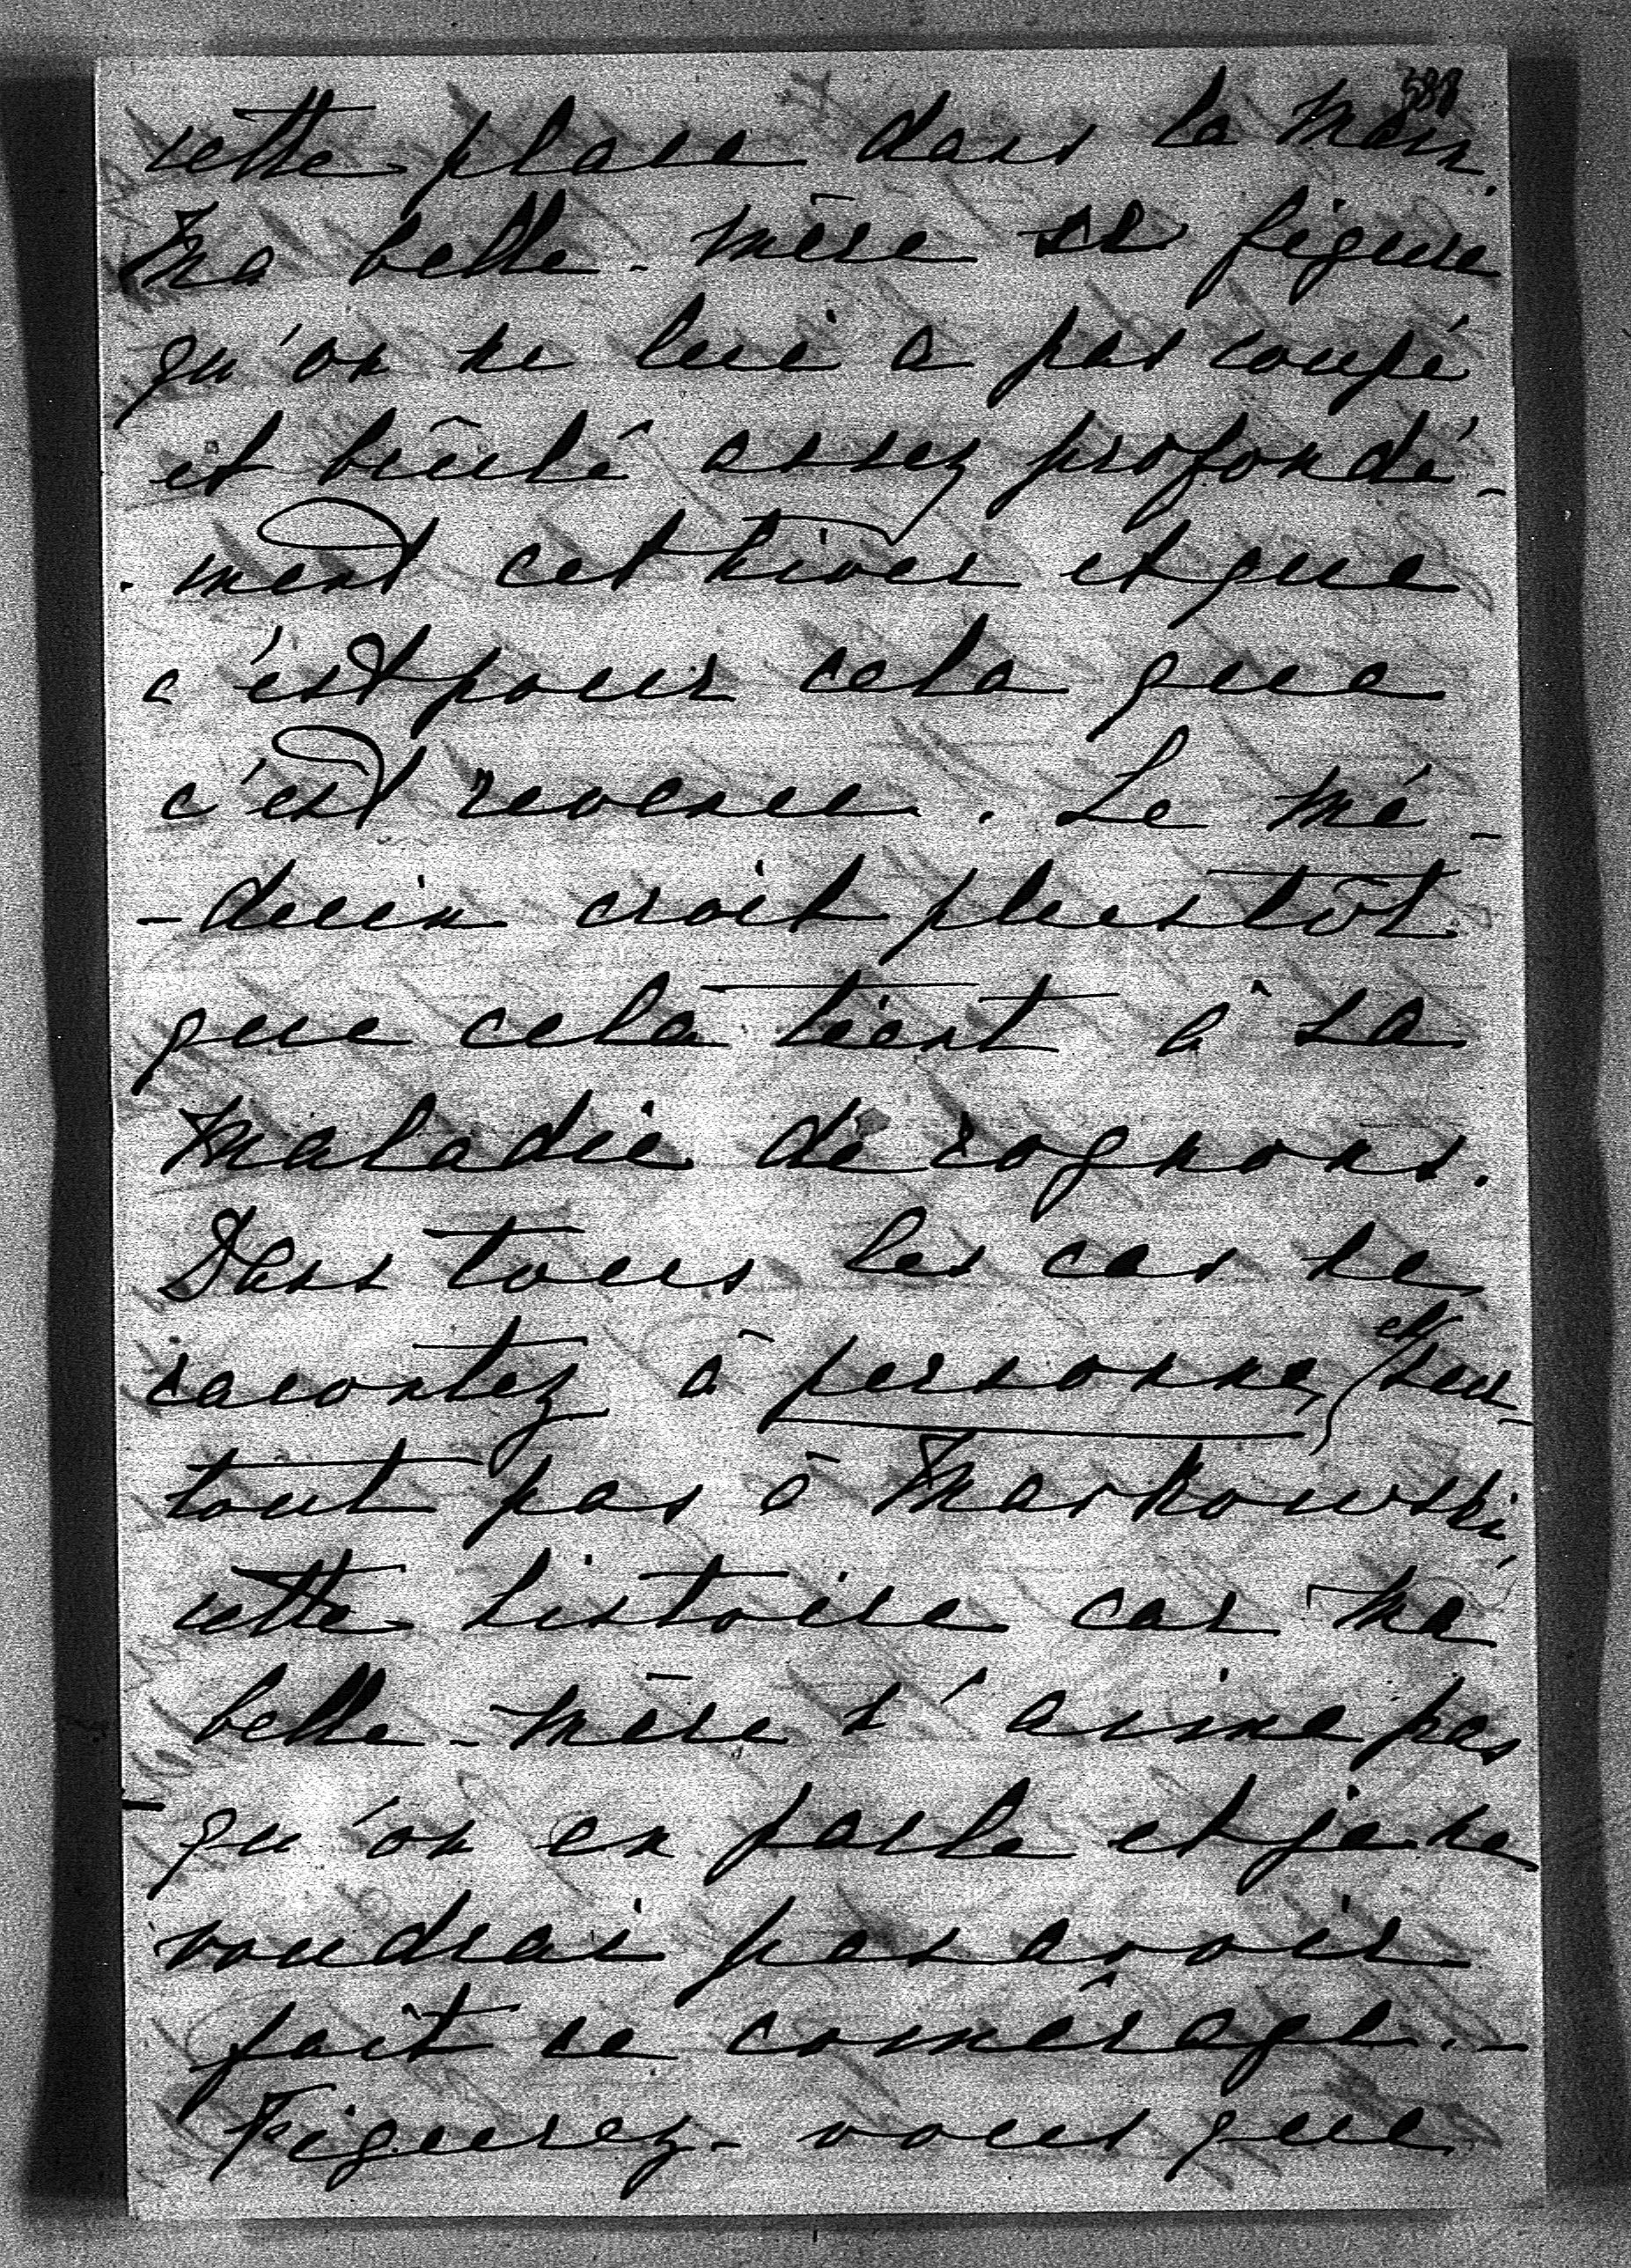 588
cette place dans la main.
Ma belle-mère se figure
qu'on ne lui a pas coupé
et brûlé assez profondé-
-ment cet hiver et que
c'est pour cela que
c'est revenu. Le mé-
-decin croit plustôt
que cela tient à sa
maladie de rognons.
Dans tous les cas ne
racontez à personne, (et sur-
tout pas à Markowski,
cette histoire car ma
belle-mère n'aime pas
qu'on en parle et je ne
voudrai pas avoir
fait ce comérage. -
Figurez-vous que